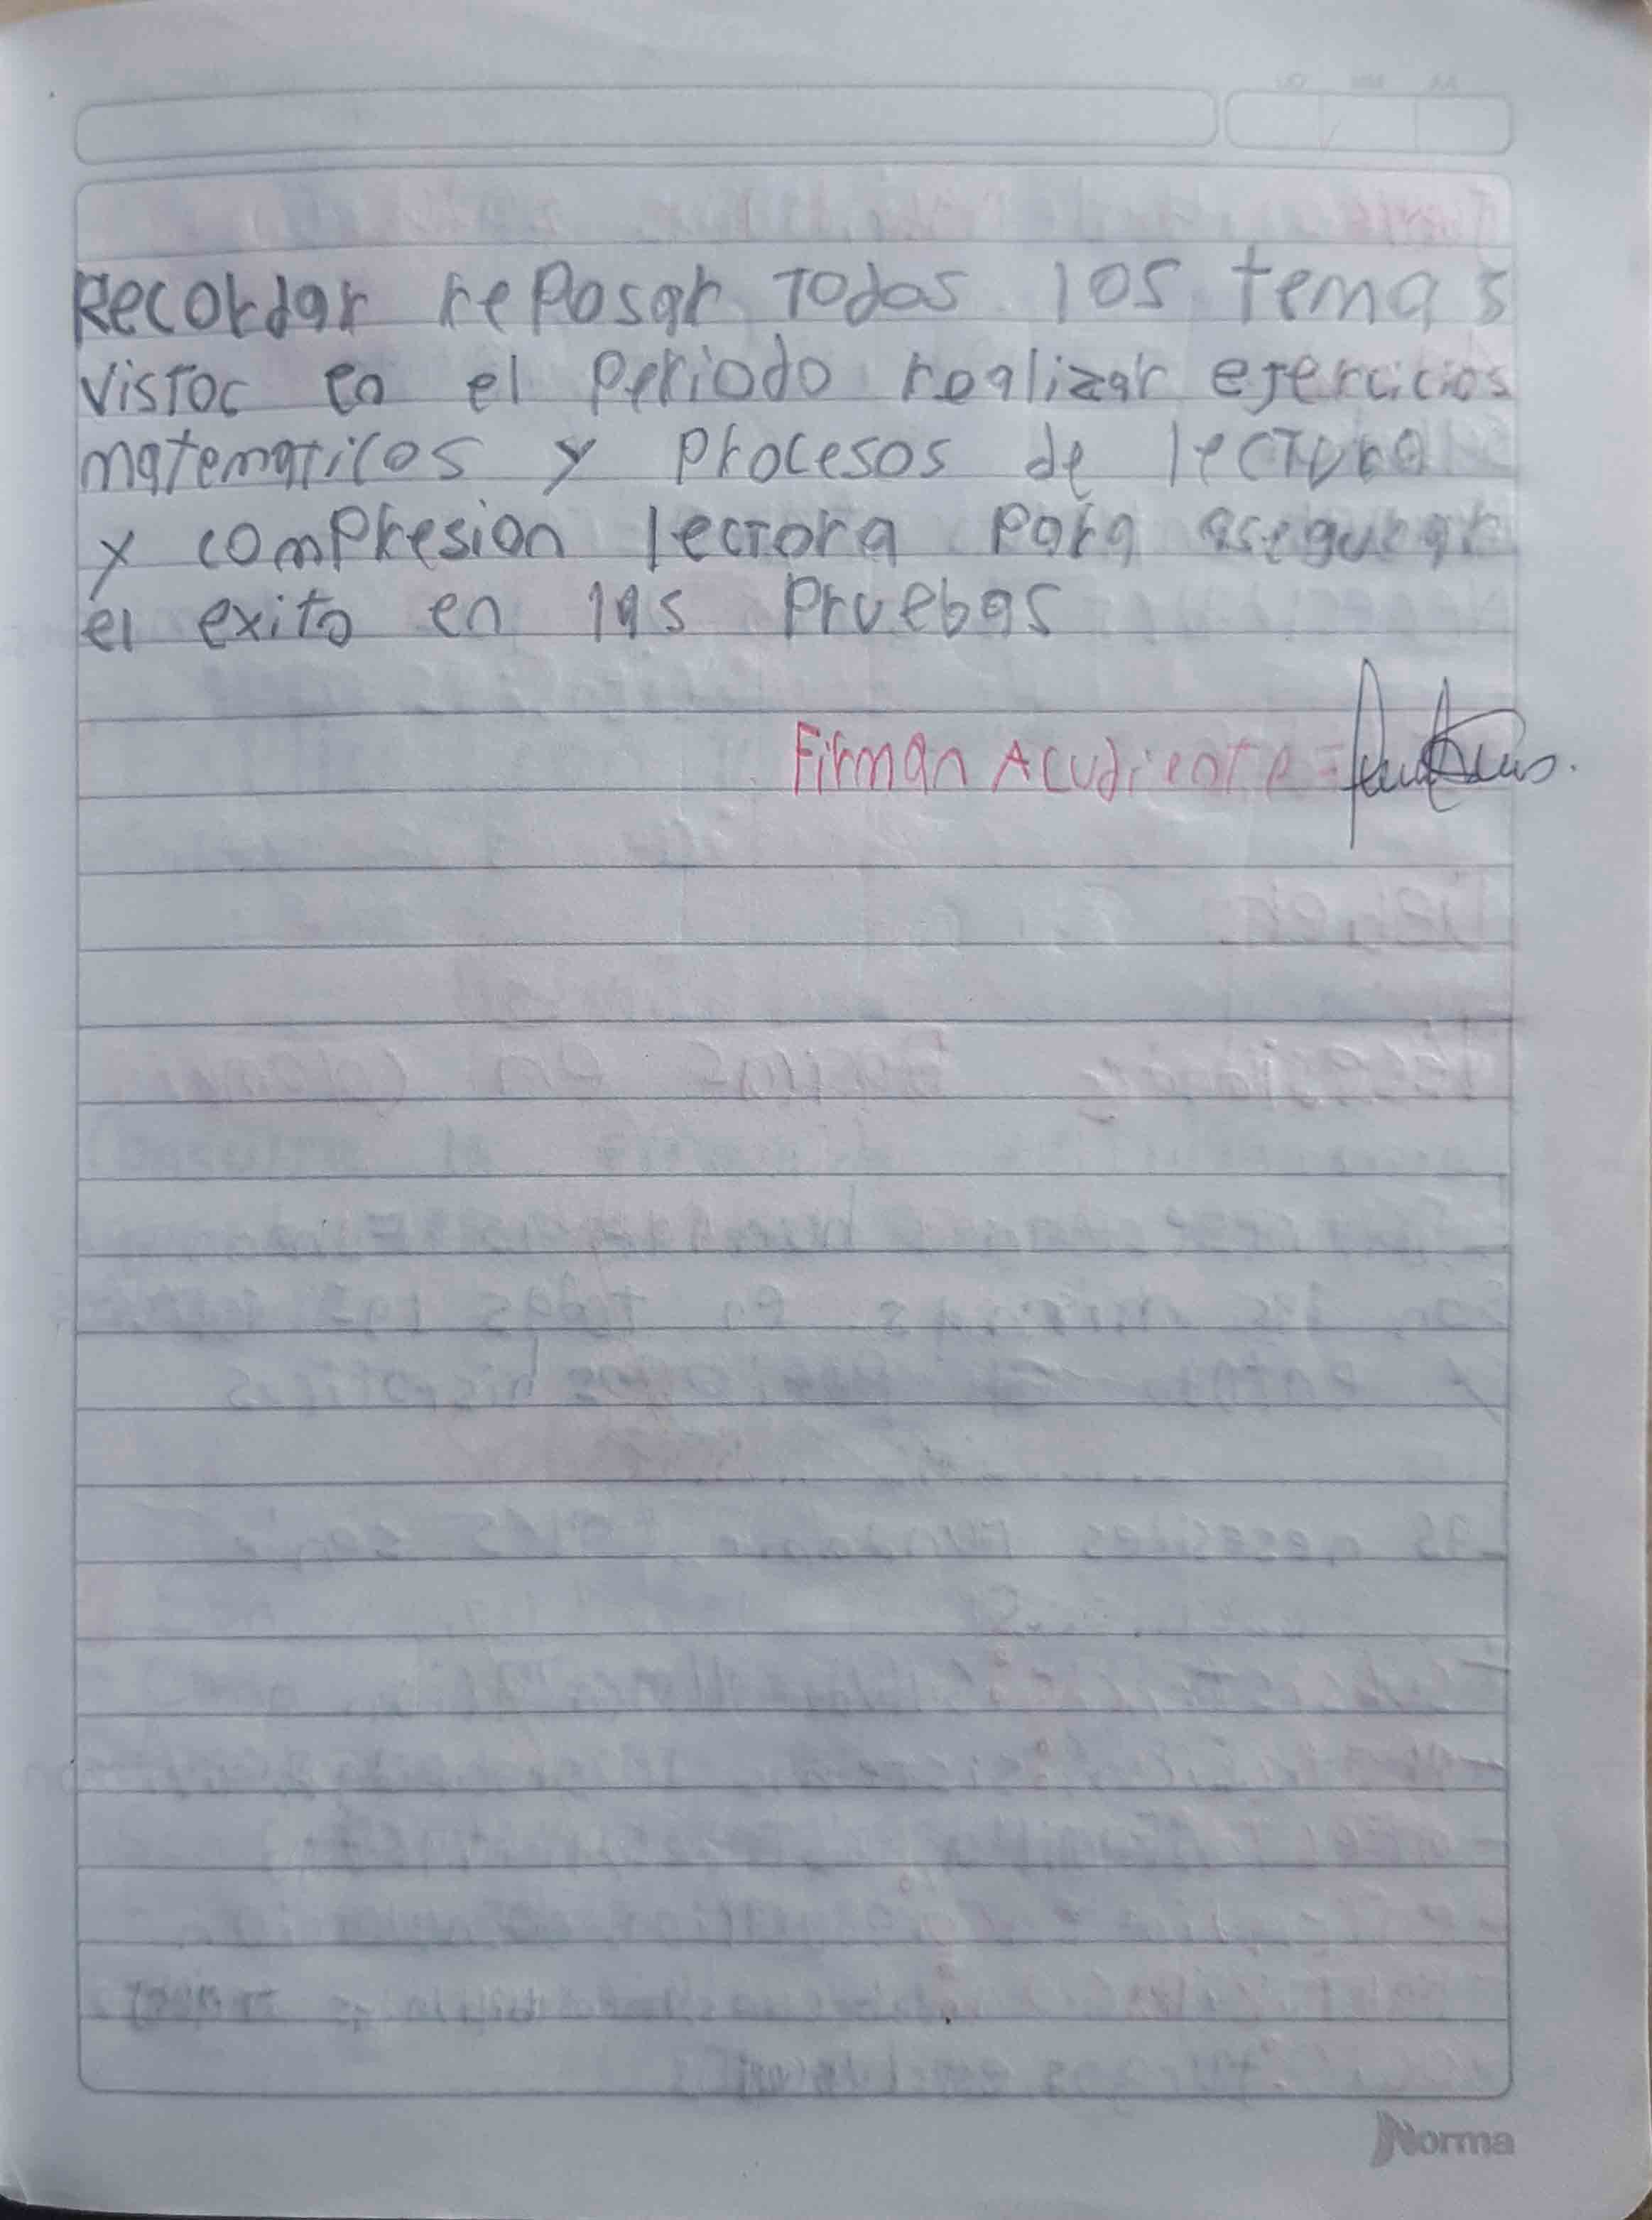 Recordar rePasar Todos los temas
vistoc en el Periodo realizar ejercicios
matematicos y Procesos de lectura
y comPresion lectora Para asegurar
el exito en las Pruebas
Firman Acudiente =
Norma